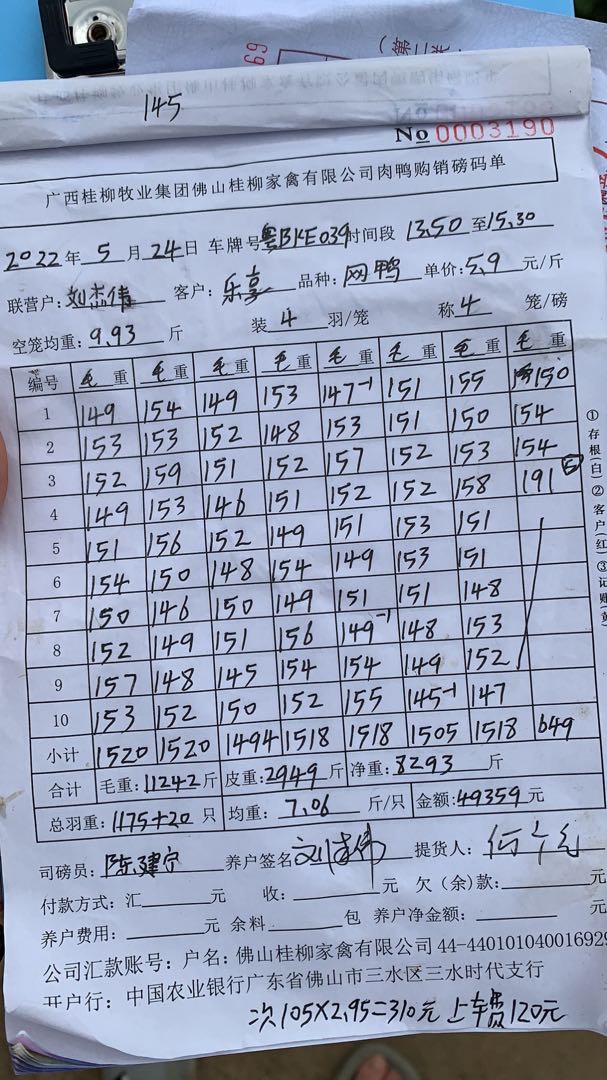 145
(第二联
69
No 0003190
广西桂柳牧业集团佛山桂柳家禽有限公司肉鸭购销磅码单
2022年 5 月 24 日 车牌号 粤BKE039 时间段 13.50 至 15.30
联营户: 刘杰伟 客户: 乐享 品种: 网鸭 单价: 5.9 元/斤
空笼均重: 9.93 斤 装 4 羽/笼 称 4 笼/磅
编号 毛重 毛重 毛重 毛重 毛重 毛重 毛重 毛重
1 149 154 149 153 147-1 151 155 150
2 153 153 152 148 153 151 150 154
3 152 159 151 152 157 152 153 154
4 149 153 146 151 152 152 158 191 ⑤
5 151 156 152 149 151 153 151
6 154 150 148 154 149 153 151
7 150 146 150 149 151 151 148
8 152 149 151 156 149-1 148 153
9 157 148 145 154 154 149 152
10 153 152 150 152 155 145-1 147
小计 1520 1520 1494 1518 1518 1505 1518 649
合计 毛重: 11242 斤 皮重: 2949 斤 净重: 8293 斤
总羽重: 1175+20 只 均重: 7.06 斤/只 金额: 49359 元
司磅员: 陈建宁 养户签名 刘杰伟 提货人:
付款方式: 汇 元 收: 元 欠(余)款: 元
养户费用: 元 余料 包 养户净金额: 元
公司汇款账号: 户名: 佛山桂柳家禽有限公司 44-440101040016929
开户行: 中国农业银行广东省佛山市三水区三水时代支行
次105×2.95=310元 上车费120元
①存根(白)②客户(红)③记账(黄)